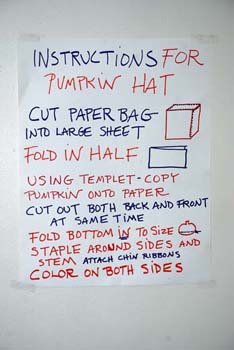 INSTRUCTIONS FOR
PUMPKIN HAT
CUT PAPER BAG
INTO LARGE SHEET
FOLD IN HALF
USING TEMPLET-COPY
PUMPKIN ONTO PAPER
CUT OUT BOTH BACK AND FRONT
AT SAME TIME
FOLD BOTTOM IN TO SIZE
STAPLE AROUND SIDES AND
STEM ATTACH CHIN RIBBONS
COLOR ON BOTH SIDES